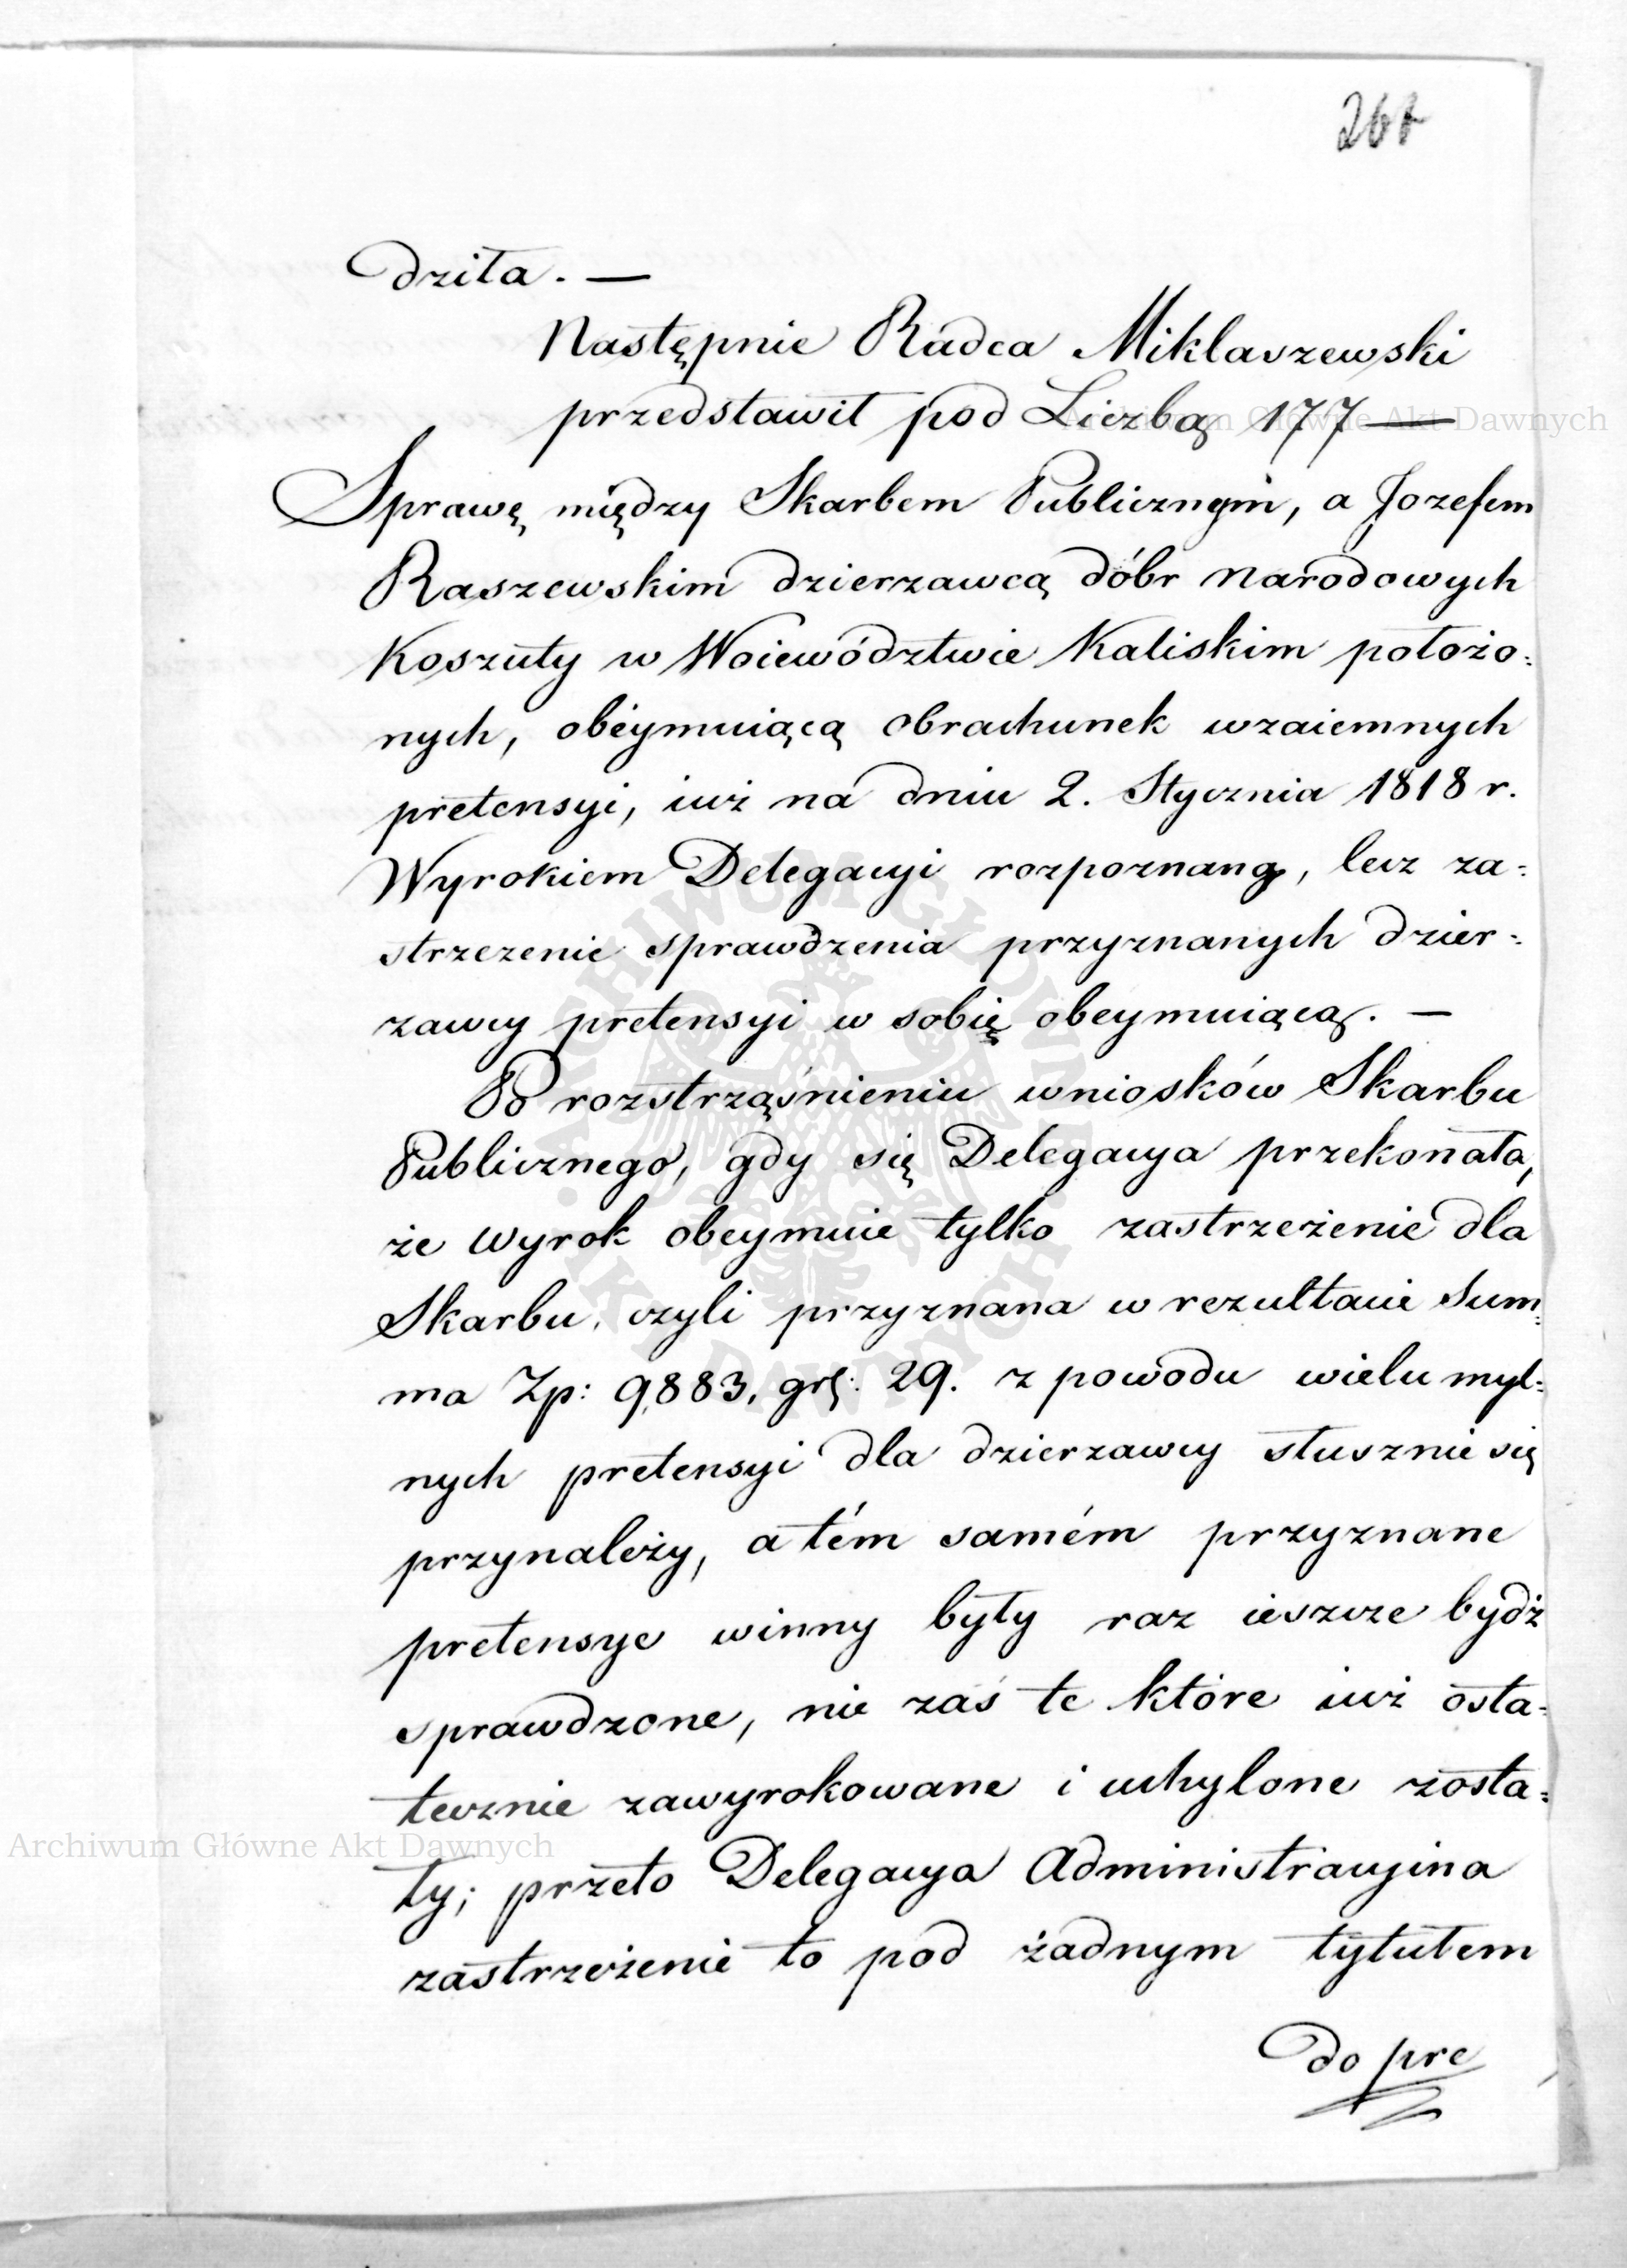 267
dziła. —
Następnie Radca Miklaszewski
przedstawił pod Liczbą 177 —
Archiwum Główne Akt Dawnych
Sprawę między Skarbem Publicznym, a Jozefem
Raszewskim dzierzawcą dóbr Narodowych
Koszuty w Woiewództwie Kaliskim położo=
nych, obéymuiącą obrachunek wzaiemnych
pretensyi, iuż na dniu 2. Stycznia 1818 r.
Wyrokiem Delegacyi rozpoznaną, lecz za=
strzezenie sprawdzenia przyznanych dzier=
zawcy pretensyi w sobię obeymuiącą. —
Po rozstrząśnieniu wniosków Skarbu
Publicznego, gdy się Delegacya przekonała,
że wyrok obeymuie tylko zastrzeżenie dla
Skarbu, czyli przyznana w rezultacie Sum=
ma Zp: 9,883, gr: 29. z powodu wielu myl=
nych pretensyi dla dzierzawcy słusznie się
przynależy, a tém samém przyznane
pretensye winny były raz ieszcze bydź
sprawdzone, nie zaś te które iuż osta=
tecznie zawyrokowane i uchylone zosta=
Archiwum Główne Akt Dawnych
ły; przeto Delegacya Administracyina
zastrzeżenie to pod żadnym tytułem
do pre
ARCHIWUM GŁÓWNE
AKT DAWNYCH